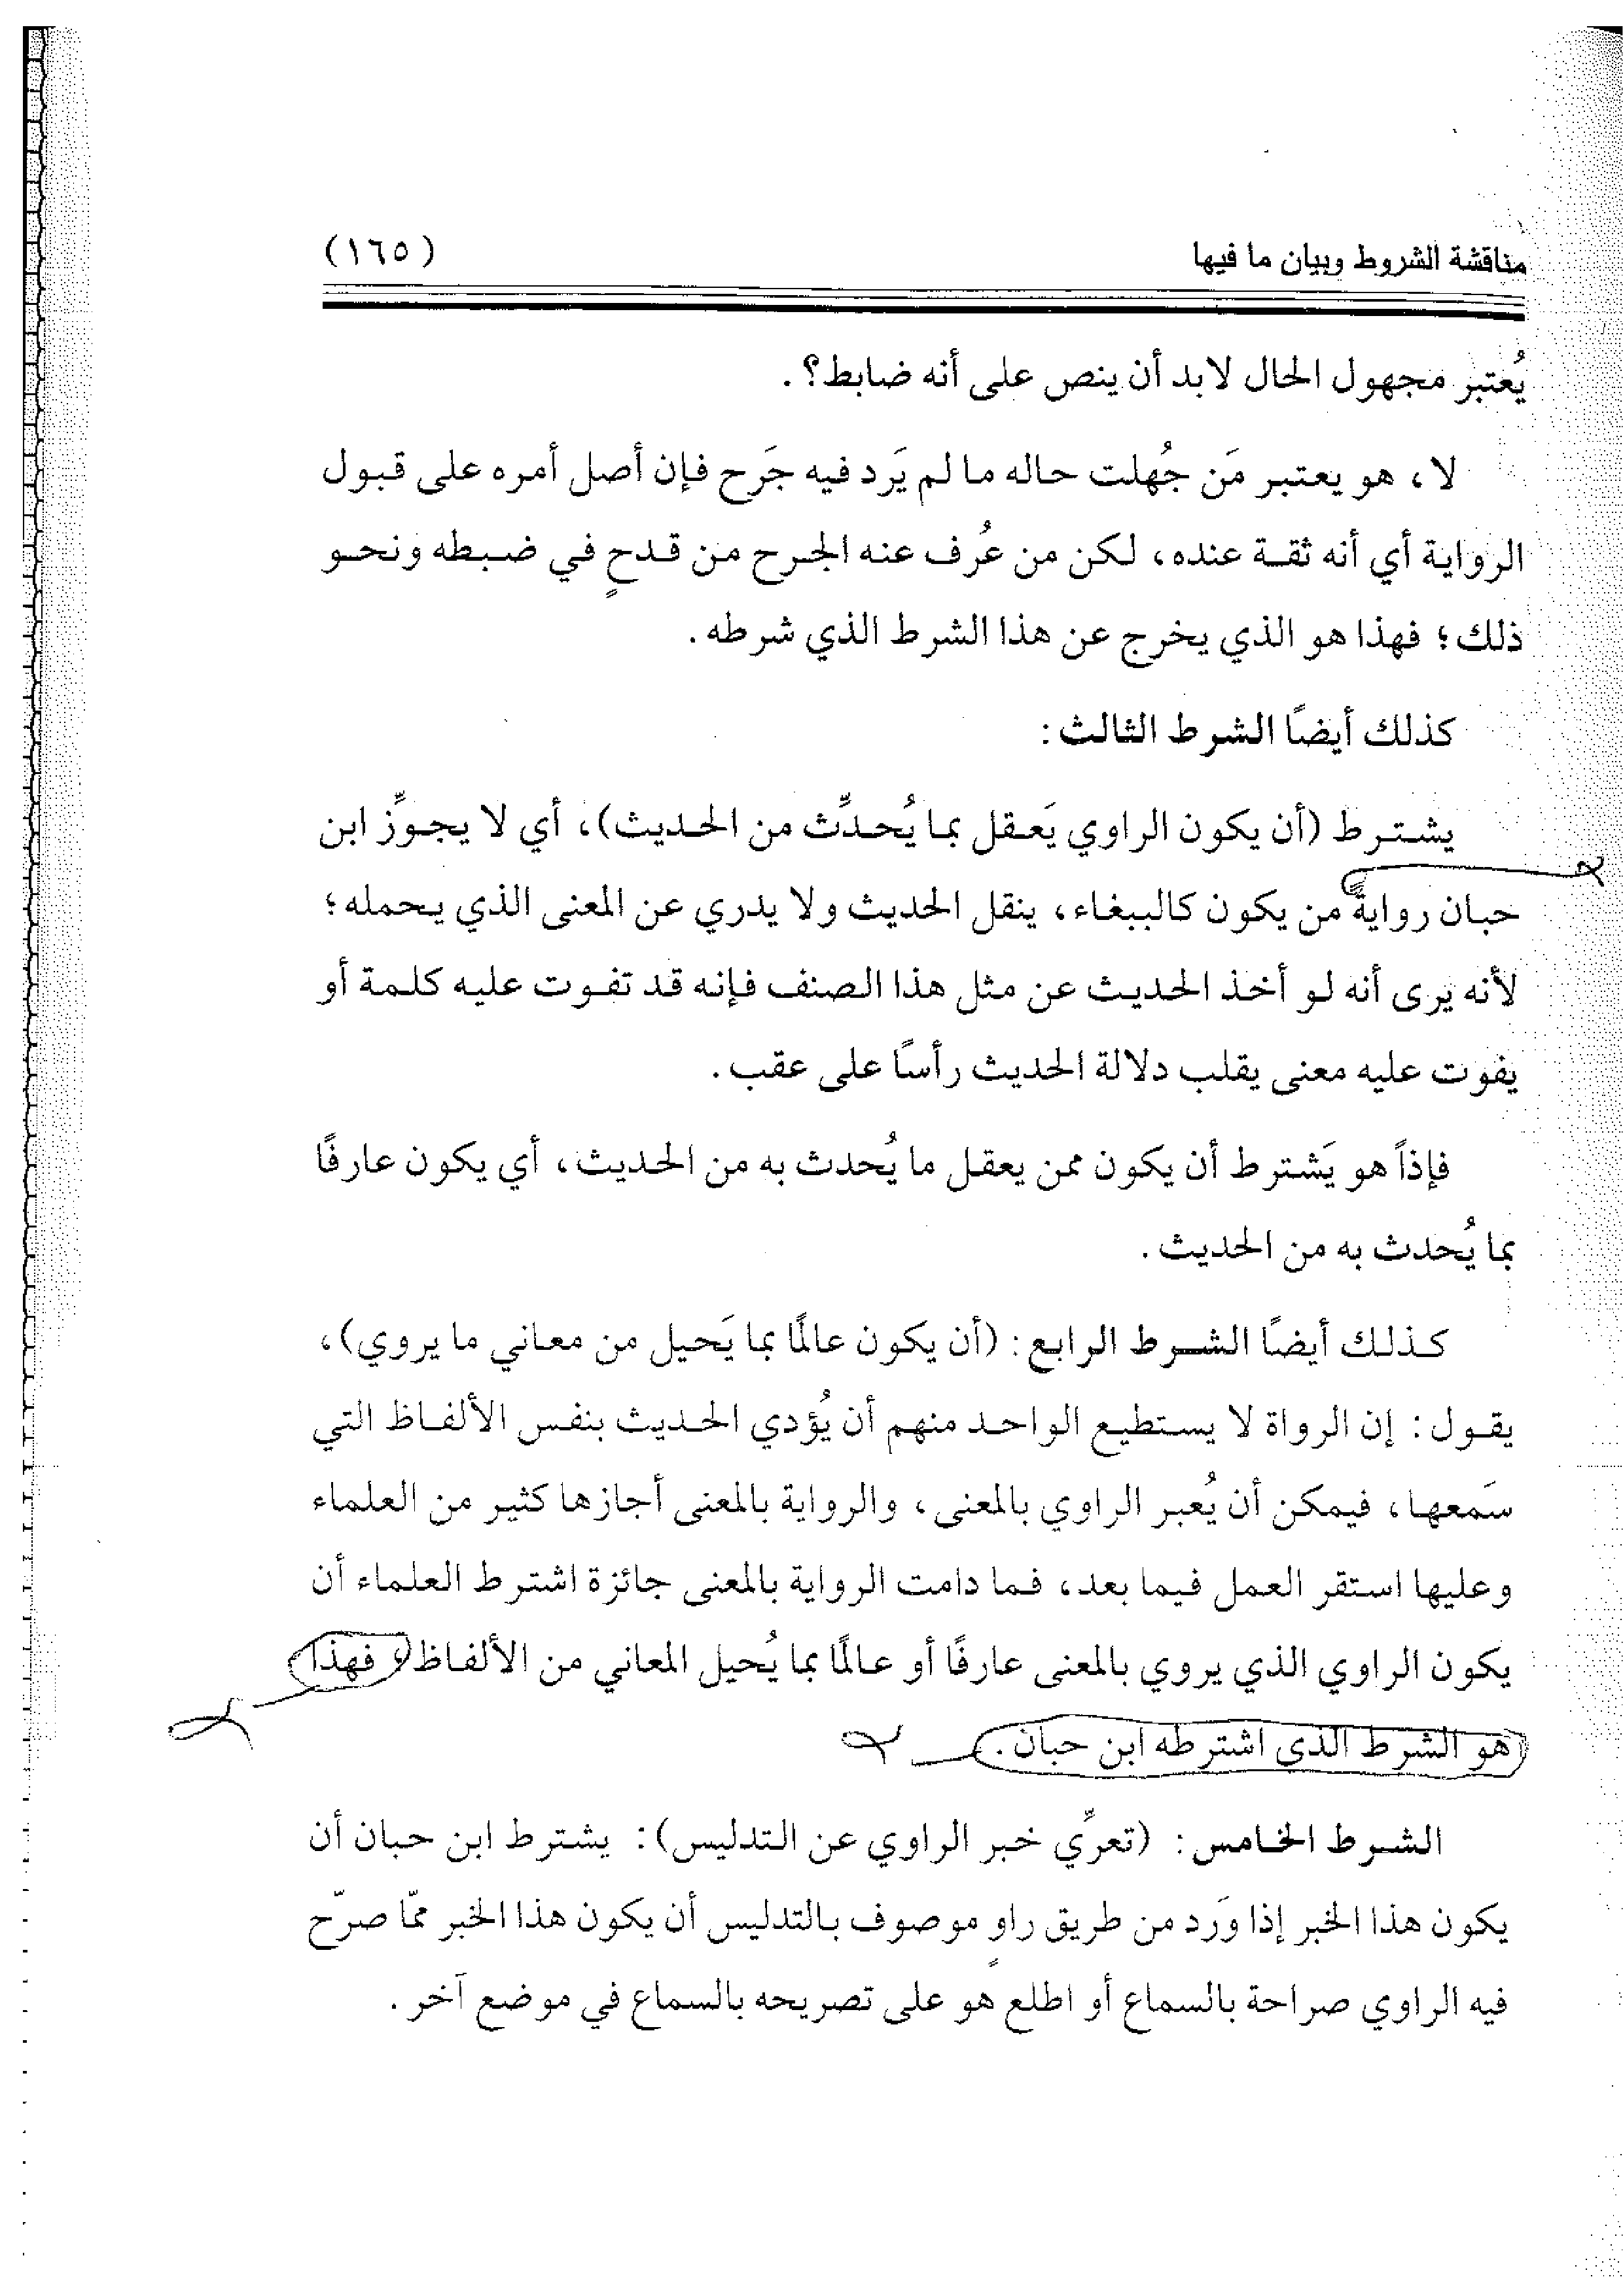 مناقشة الشروط وبيان ما فيها (١٦٥)
يُعتبر مجهول الحال لابد أن ينص على أنه ضابط؟ .
لا، هو يعتبر مَن جُهلت حاله ما لم يَرد فيه جَرح فإن أصل أمره على قبول
الرواية أي أنه ثقة عنده، لكن من عُرف عنه الجرح من قدحٍ في ضبطه ونحو
ذلك؛ فهذا هو الذي يخرج عن هذا الشرط الذي شرطه .
كذلك أيضًا الشرط الثالث:
يشترط (أن يكون الراوي يَعقل بما يُحدِّث من الحديث)، أي لا يجوِّز ابن
حبان روايةً من يكون كالببغاء، ينقل الحديث ولا يدري عن المعنى الذي يحمله؛
لأنه يرى أنه لو أخذ الحديث عن مثل هذا الصنف فإنه قد تفوت عليه كلمة أو
يفوت عليه معنى يقلب دلالة الحديث رأسًا على عقب .
فإذاً هو يَشترط أن يكون ممن يعقل ما يُحدث به من الحديث، أي يكون عارفًا
بما يُحدث به من الحديث .
كذلك أيضًا الشرط الرابع : (أن يكون عالمًا بما يَحيل من معاني ما يروي)،
يقول : إن الرواة لا يستطيع الواحد منهم أن يُؤدي الحديث بنفس الألفاظ التي
سَمعها، فيمكن أن يُعبر الراوي بالمعنى، والرواية بالمعنى أجازها كثير من العلماء
وعليها استقر العمل فيما بعد، فما دامت الرواية بالمعنى جائزة اشترط العلماء أن
يكون الراوي الذي يروي بالمعنى عارفًا أو عالمًا بما يُحيل المعاني من الألفاظ، فهذا
هو الشرط الذي اشترطه ابن حبان .
الشرط الخامس : (تعرِّي خبر الراوي عن التدليس) : يشترط ابن حبان أن
يكون هذا الخبر إذا وَرد من طريق راوٍ موصوف بالتدليس أن يكون هذا الخبر ممّا صرّح
فيه الراوي صراحة بالسماع أو اطلع هو على تصريحه بالسماع في موضع آخر .